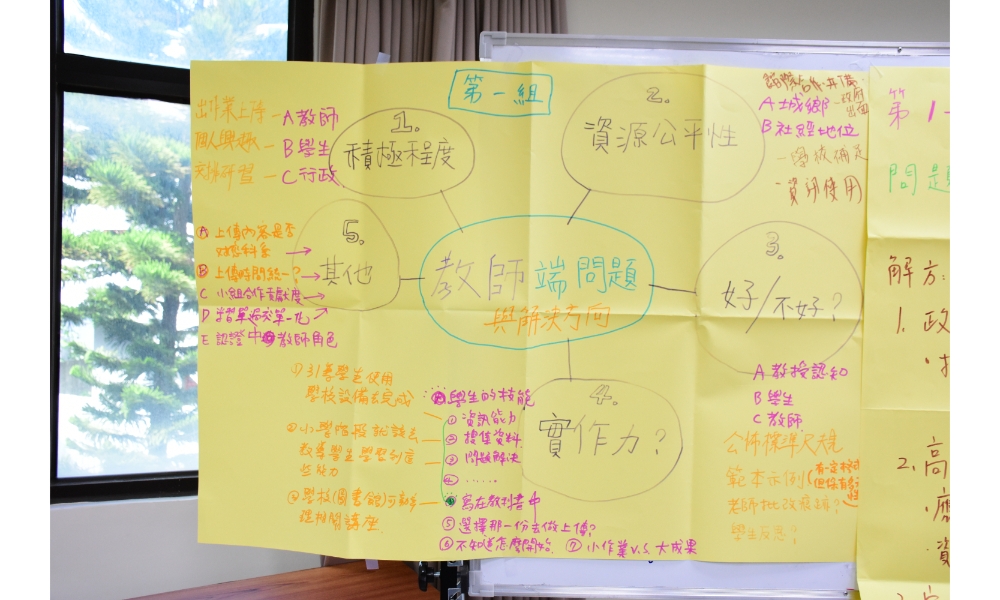 第一組
教師端問題
與解決方向
1.
積極程度
出作業上待 — A 教師
個人興趣 — B 學生
安排研習 — C 行政
2.
資源公平性
A 城鄉 — 政府
B 社經地位
— 學校補足
· 資訊使用
3.
好/不好？
A 教授認知
B 學生
C 教師
公佈標準尺規
範本示例
老師批改
學生反思？
4.
實作力？
學生的技能
① 資訊能力
② 搜集資料
③ 問題解決
④ ......
寫在教科書中
⑤ 選擇那一份去做上傳？
⑥ 不知道怎麼開始. ⑦ 小作業 v.s. 大成果
① 引導學生使用
學校設備去完成
② 小學階段就該去
教導學生學習
③ 學校(圖書館)可辦
理相關講座
5.
其他
A 上傳內容是否
B 上傳時間統一？
C 小組合作貢獻度
D 單一化
E 認證中 教師角色
第 1
問題
解方:
1. 政
2. 高
· 應
· 資